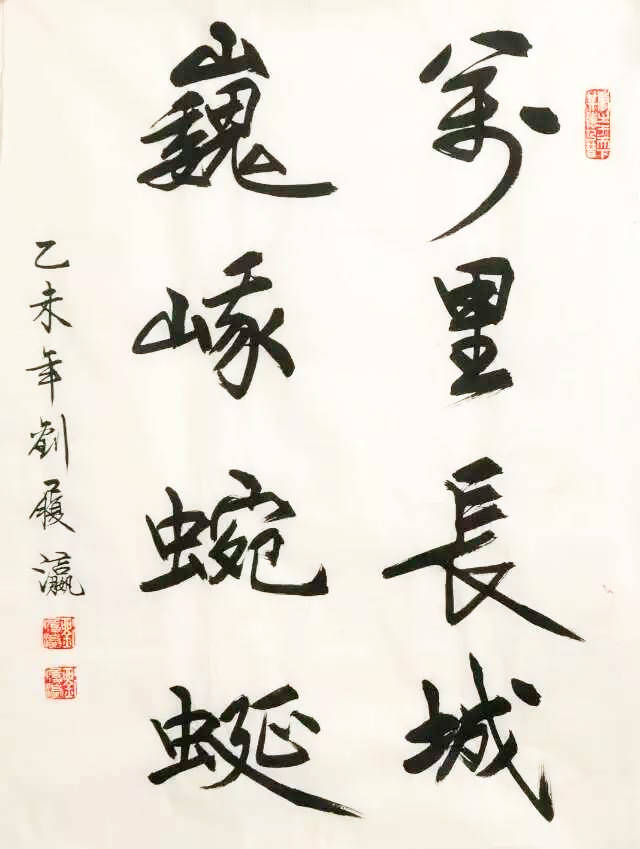 萬里長城
巍峨蜿蜒
乙未年劉履瀛